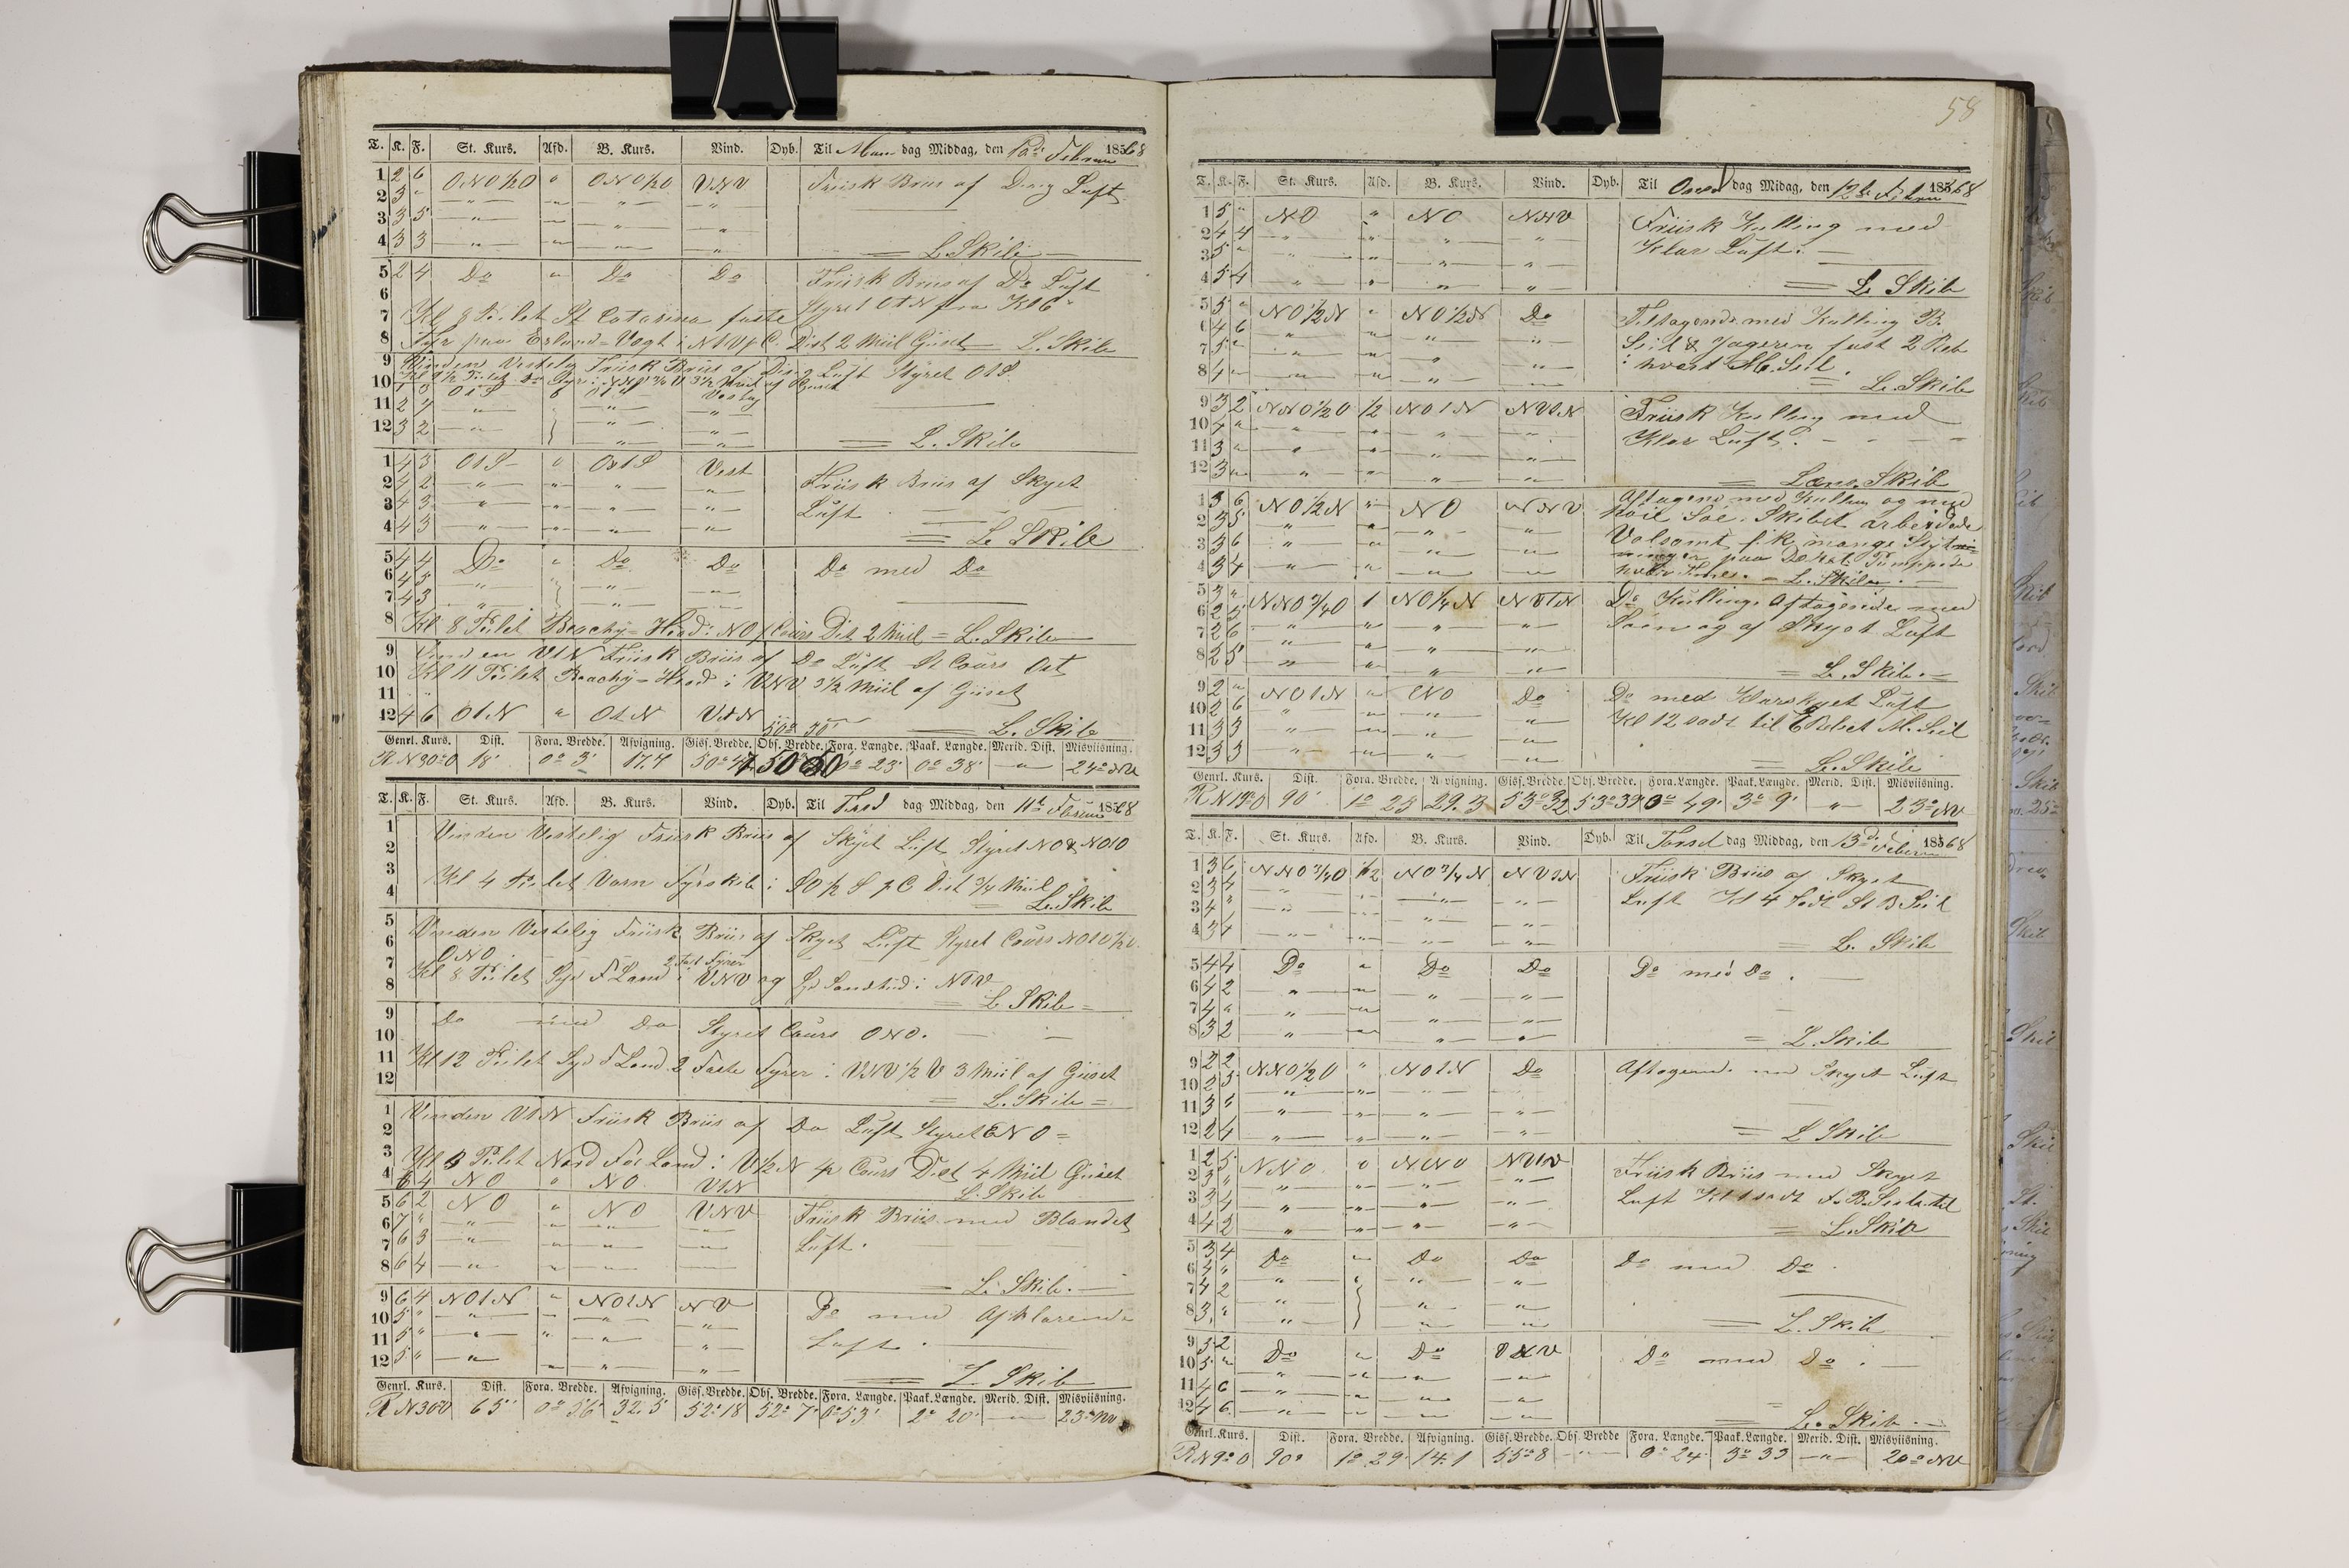 T. K. F. St. Kurs. Afd. B. Kurs. Vind. Dyb. Til Man dag Middag, den 10de Februar 1868
1 2 6 ONO½O " ONO½O VNV Friisk Briis af Diisig Luft
2 3 "
3 3 5
4 3 3 L. Skib
5 2 4 Do " Do Do Friisk Briis af Do Luft
6 Styret OtN fra Kl 6
7 Kl 8 Peilet St Catarina faste
8 Fyr paa Eiland=Vagt i NtV p C. Dist 2 Miil Gisset L. Skib
9 Vinden Vestelig Friisk Briis af Diisig Luft Styret OtS.
10 OtS Vestlig
11 2 4
12 3 2 L. Skib
1 4 3 OtS " OtS Vest Friisk Briis af Skyet
2 4 2 Luft
3 4 3
4 4 3 L. Skib
5 4 4 Do " Do Do Do med Do
6 4 5
7 4 3
8 Kl 8 Peilet Beachy=Head i NO p Cours Dist 2 Miil = L. Skib
9 Vinden VtN Friisk Briis af Do Luft St Cours Ost
10 Kl 11 Peilet Beachy=Head i VNV 3½ Miil af Gisset
11
12 4 6 OtN " OtN VtN L. Skib
Genrl. Kurs. Dist. Fora. Bredde. Afvigning. Giss. Bredde. Obs. Bredde. Fora. Længde. Paak. Længde. Merid. Dist. Misviisning.
R N30°O 18' 0° 3' 17.7 50° 47 50° 30 0° 23' 0° 38' " 24° NV
T. K. F. St. Kurs. Afd. B. Kurs. Vind. Dyb. Til Tirsd dag Middag, den 11te Februar 1868
1 Vinden Vestelig Friisk Briis af Skyet Luft Styret NO & NOtO
2
3 Kl 4 Peilet Varn Fyrskib i SO½S p C Dist ¾ Miil
4 L. Skib
5 Vinden Vestelig Friisk Briis af Skyet Luft Styret Cours NOtO½O.
6 ONO
7 2 Fast Fyrer
8 Kl 8 Peilet Syd F Land i VNV og Gd Sandhed i NtV
L. Skib =
9 Do med Do Styret Cours ONO.
10
11 Kl 12 Peilet Syd F Land 2 Faste Fyrer i VNV½V 3 Miil af Gisset
12 L. Skib =
1 Vinden VtN Friisk Briis af Do Luft Styret NO =
2
3 Kl 3 Peilet Nord For Land i V½N p Cours Dist 4 Miil Gisset
4 6 4 NO " NO VtN L. Skib
5 6 2 NO " NO VNV Friisk Briis med Blandet
6 7 " Luft.
7 6 3
8 6 4 L. Skib.
9 6 4 NOtN " NOtN NV Do med Afklarende
10 5 " Luft.
11 5 "
12 5 " L. Skib
Genrl. Kurs. Dist. Fora. Bredde. Afvigning. Giss. Bredde. Obs. Bredde. Fora. Længde. Paak. Længde. Merid. Dist. Misviisning.
R N30°O 65' 0° 56' 32.5 52° 18 52° 7' 0° 53' 2° 20' 23° NV
58
T. K. F. St. Kurs. Afd. B. Kurs. Vind. Dyb. Til Onsd dag Midag, den 12te Febru 1868
1 5 " NO " NO NNV Friisk Kulling med
2 4 4 Klar Luft.
3 5 "
4 5 4 L. Skib
5 5 " NO½N " NO½N Do Tiltagende med Kulling B.
6 4 6 Seil & Jageren fast 2 Reb
7 5 " i hvert M. Seil.
8 4 L. Skib
9 3 2 NNO½O ½ NOtN NVtN Friisk Kulling med
10 4 " Klar Luft.
11 3 "
12 3 " Læns. Skib
1 3 6 NO½N " NO NNV Aftagend med Kulling og med
2 3 5 höi Söe. Skibet arbeidede
3 3 6 Volsomt fik mange Styrt
4 3 4 paa Dekket Pumppede
hver Time. L. Skib.
5 3 " NNO¾O 1 NO¼N NVtN Do Kulling aftagende med
6 2 5 Söen og af Skyet Luft
7 2 6
8 2 5 L. Skib.
9 2 " NOtN " NO Do Do med Klarskyet Luft
10 2 6 Kl 12 sadt til Rebet M. Seil
11 3 3
12 3 3 L. Skib
Genrl. Kurs. Dist. Fora. Bredde. Afvigning. Giss. Bredde. Obs. Bredde. Fora. Længde. Paak. Længde. Merid. Dist. Misviisning.
R N19°O 90' 1° 25 29.3 53° 32 53° 39 0° 49' 3° 9' " 23° NV
T. K. F. St. Kurs. Afd. B. Kurs. Vind. Dyb. Til Torsd dag Middag, den 13de Febru 1868
1 3 6 NNO¾O ½ NO¾N NVtN Friisk Briis af Skyet
2 3 4 Luft Kl 4 sadt St B Seil
3 4 "
4 3 4 L. Skib
5 4 4 Do " Do Do Do med Do.
6 4 2
7 4 "
8 3 2 L. Skib
9 2 2 NNO½O " NOtN Do Aftagend. med Skyet Luft
10 2 5
11 3 "
12 2 4 L Skib
1 2 5 NNO " NNO NVtV Friisk Briis med Skyet
2 3 " Luft Kl 1 sadt B. Seil til
3 3 4
4 4 2 L. Skib
5 3 4 Do " Do Do Do med Do.
6 4 "
7 4 2
8 3 " L. Skib
9 5 2 Do " Do VNV Do med Do.
10 5 "
11 4 6
12 4 6 L. Skib.
Genrl. Kurs. Dist. Fora. Bredde. Afvigning. Giss. Bredde. Obs. Bredde Fora. Længde. Paak. Længde. Merid. Dist. Misviisning.
R N9°O 90° 1° 29 14.1 55° 8 " 0° 24' 3° 33 " 20° NV